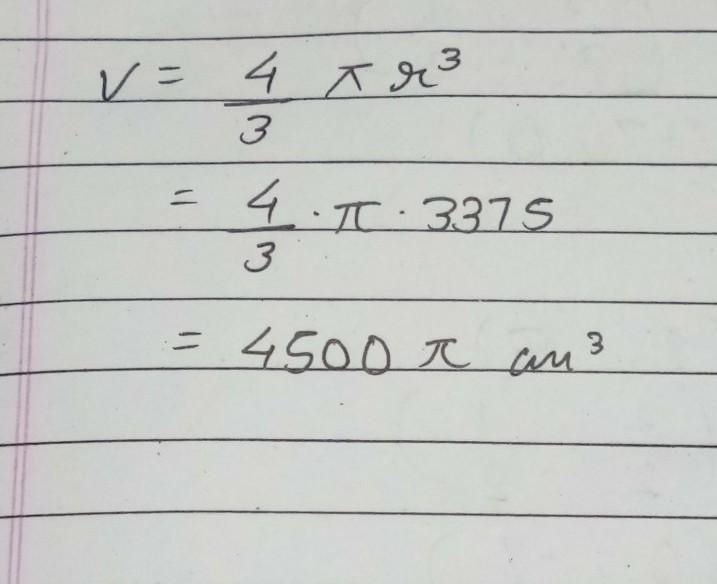 V = 4/3 π r³
= 4/3 · π · 3375
= 4500 π cm³